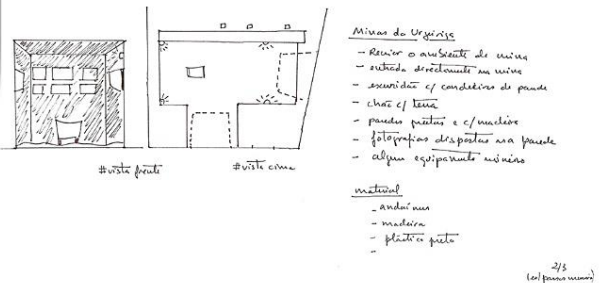 #vista frente
#vista cima
Minas da Urgeiriça
- Recriar o ambiente de mina
- entrada directamente na mina
- escuridão c/ candeeiros de parede
- chão c/ terra
- paredes pretas e c/ madeira
- fotografias dispostas na parede
- algum equipamento mineiro
material
- andaimes
- madeira
- plástico preto
-
2/3